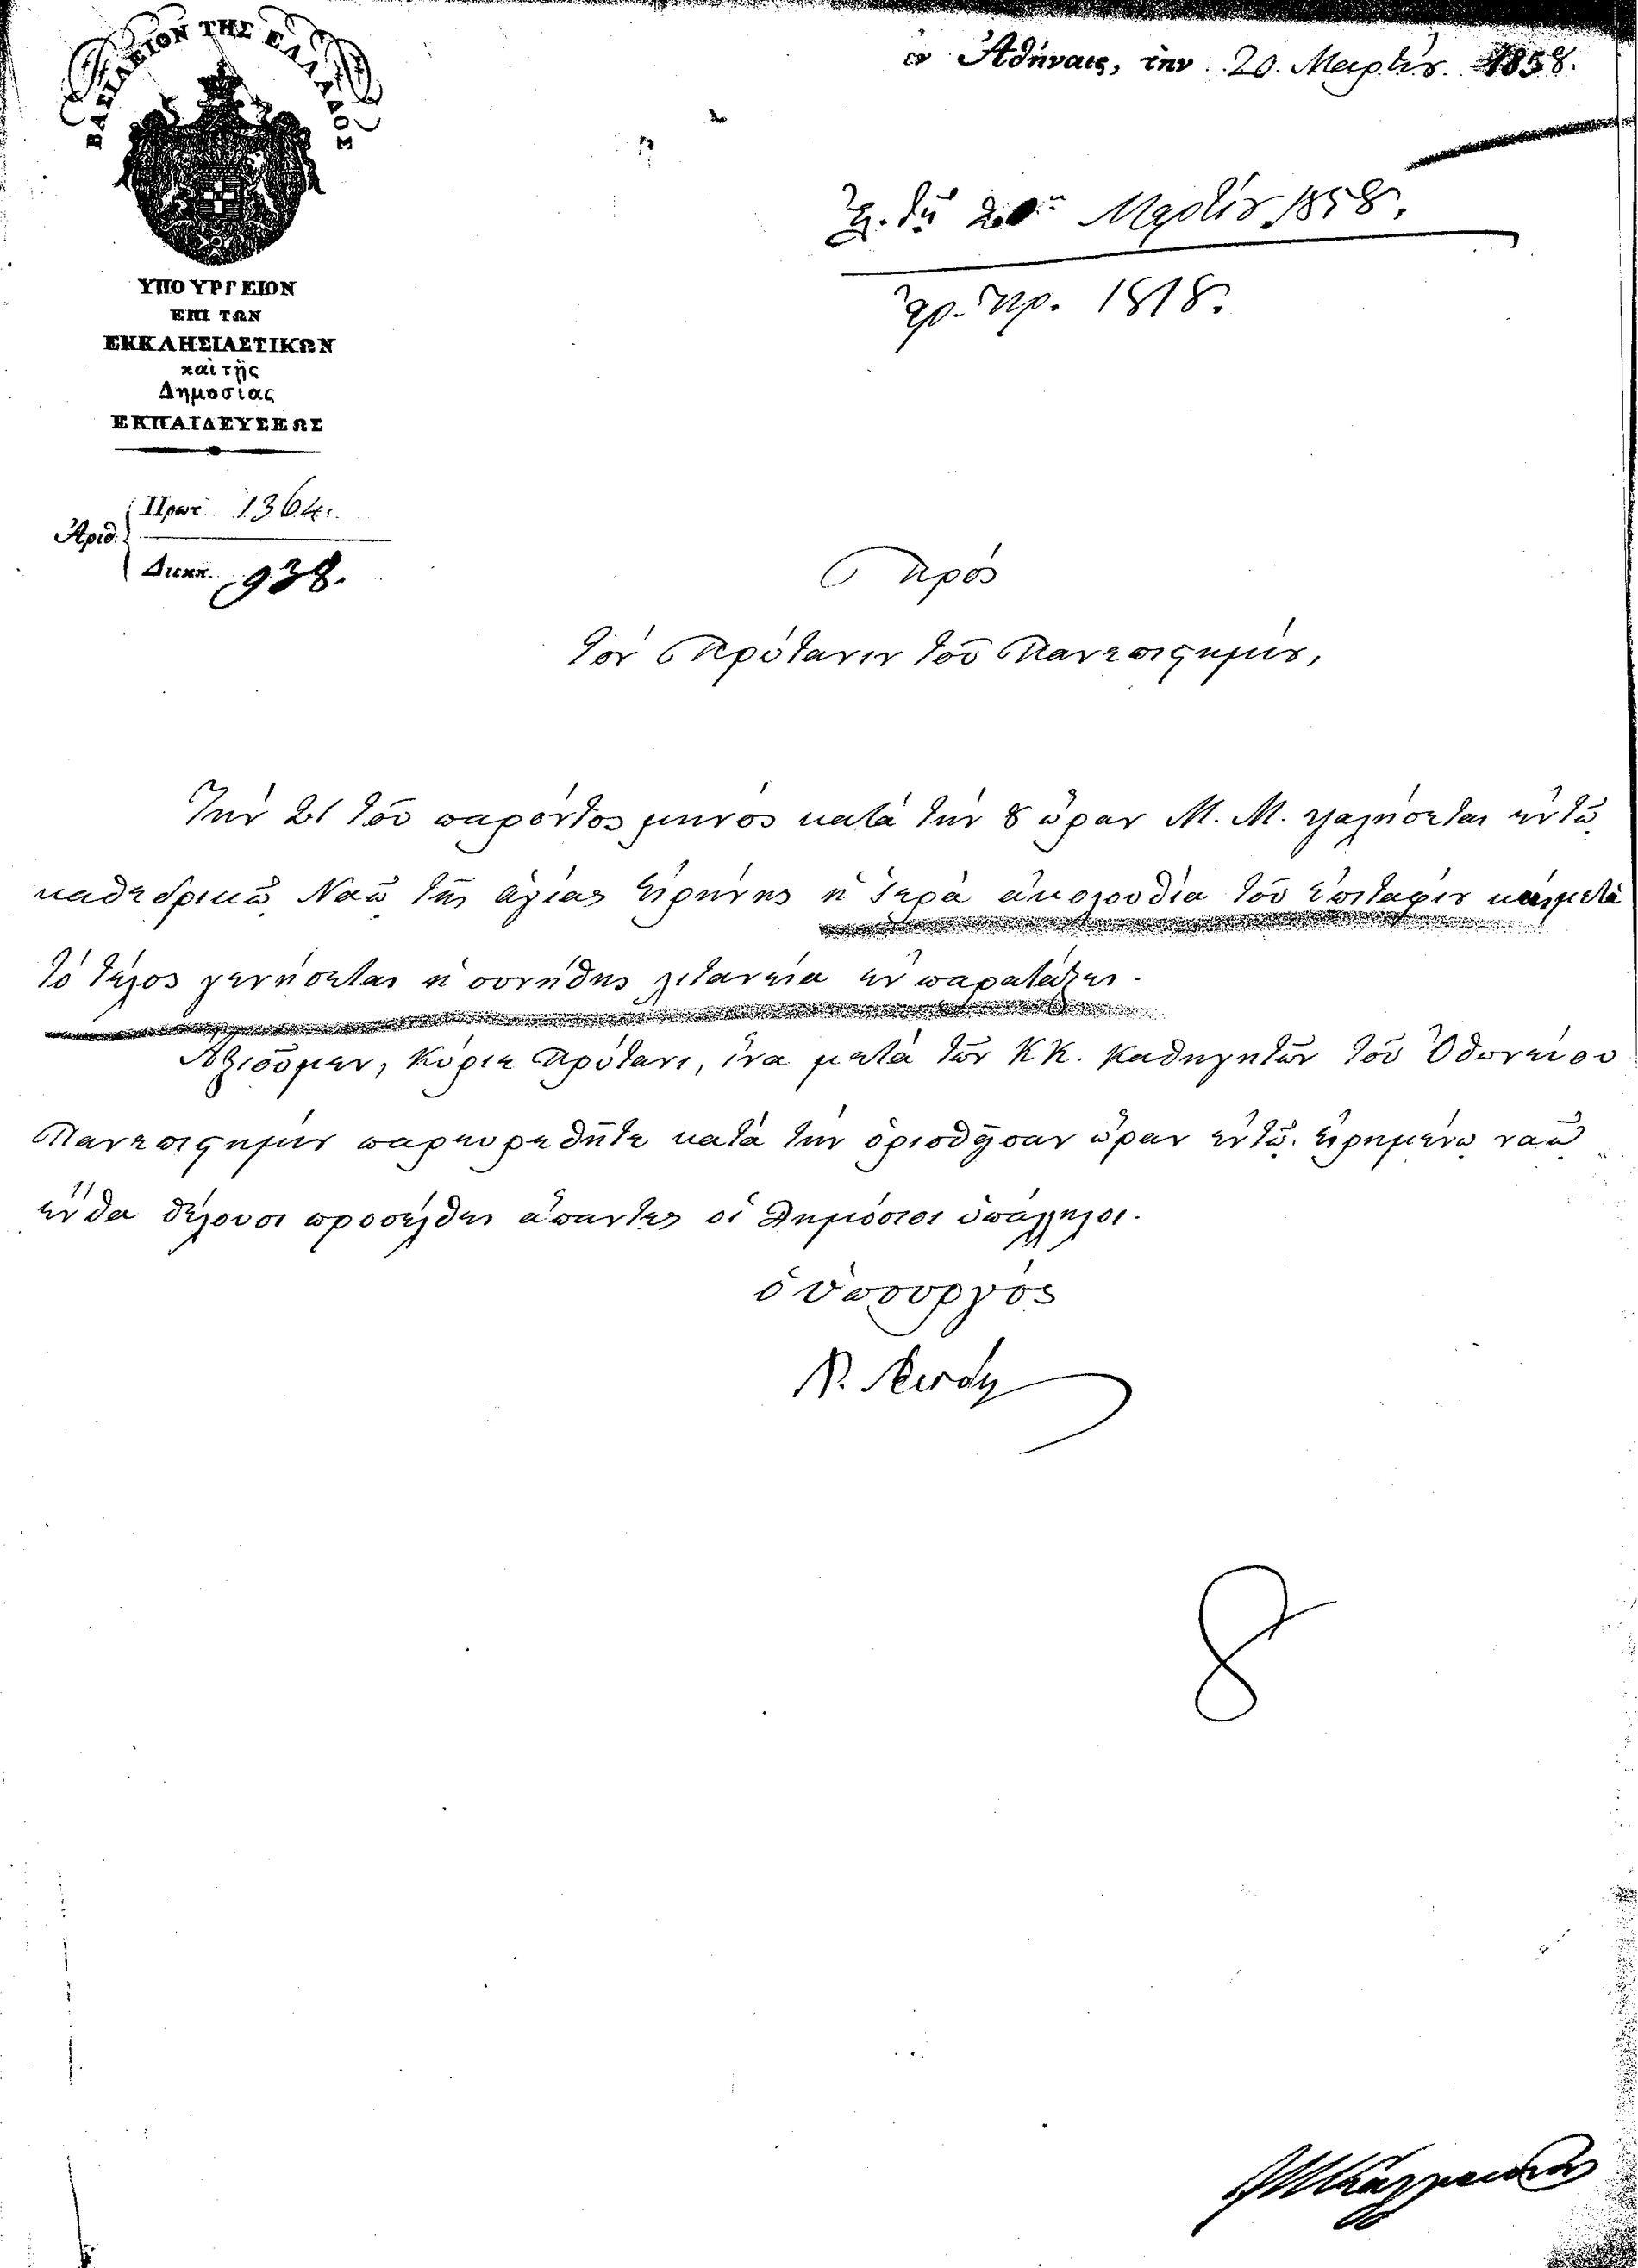 ΒΑΣΙΛΕΙΟΝ ΤΗΣ ΕΛΛΑΔΟΣ
ἐν Ἀθήναις, τὴν 20. Μαρτίου 1858.
Ἐλ. τῇ 20ῃ Μαρτίου 1858.
Ἀρ. Πρ. 1818.
ΥΠΟΥΡΓΕΙΟΝ
ΕΠΙ ΤΩΝ
ΕΚΚΛΗΣΙΑΣΤΙΚΩΝ
καὶ τῆς
Δημοσίας
ΕΚΠΑΙΔΕΥΣΕΩΣ
Ἀριθ. Πρωτ. 1364.
Διεκπ. 938.
Πρὸς
τὸν Πρύτανιν τοῦ Πανεπιστημίου,
Τὴν 21 τοῦ παρόντος μηνὸς κατὰ τὴν 8 ὥραν Μ. Μ. ψαλήσεται ἐν τῷ
καθεδρικῷ Ναῷ τῆς ἁγίας Εἰρήνης ἡ ἱερὰ ἀκολουθία τοῦ Ἐπιταφίου καὶ μετὰ
τὸ τέλος γενήσεται ἡ συνήθης λιτανεία ἐν παρατάξει.
Ἀξιοῦμεν, Κύριε Πρύτανι, ἵνα μετὰ τῶν ΚΚ. Καθηγητῶν τοῦ Ὀθωνείου
Πανεπιστημίου παρευρεθῆτε κατὰ τὴν ὁρισθεῖσαν ὥραν ἐν τῷ εἰρημένῳ ναῷ
ἔνθα θέλουσι προσέλθει ἅπαντες οἱ δημόσιοι ὑπάλληλοι.
ὁ ὑπουργὸς
8